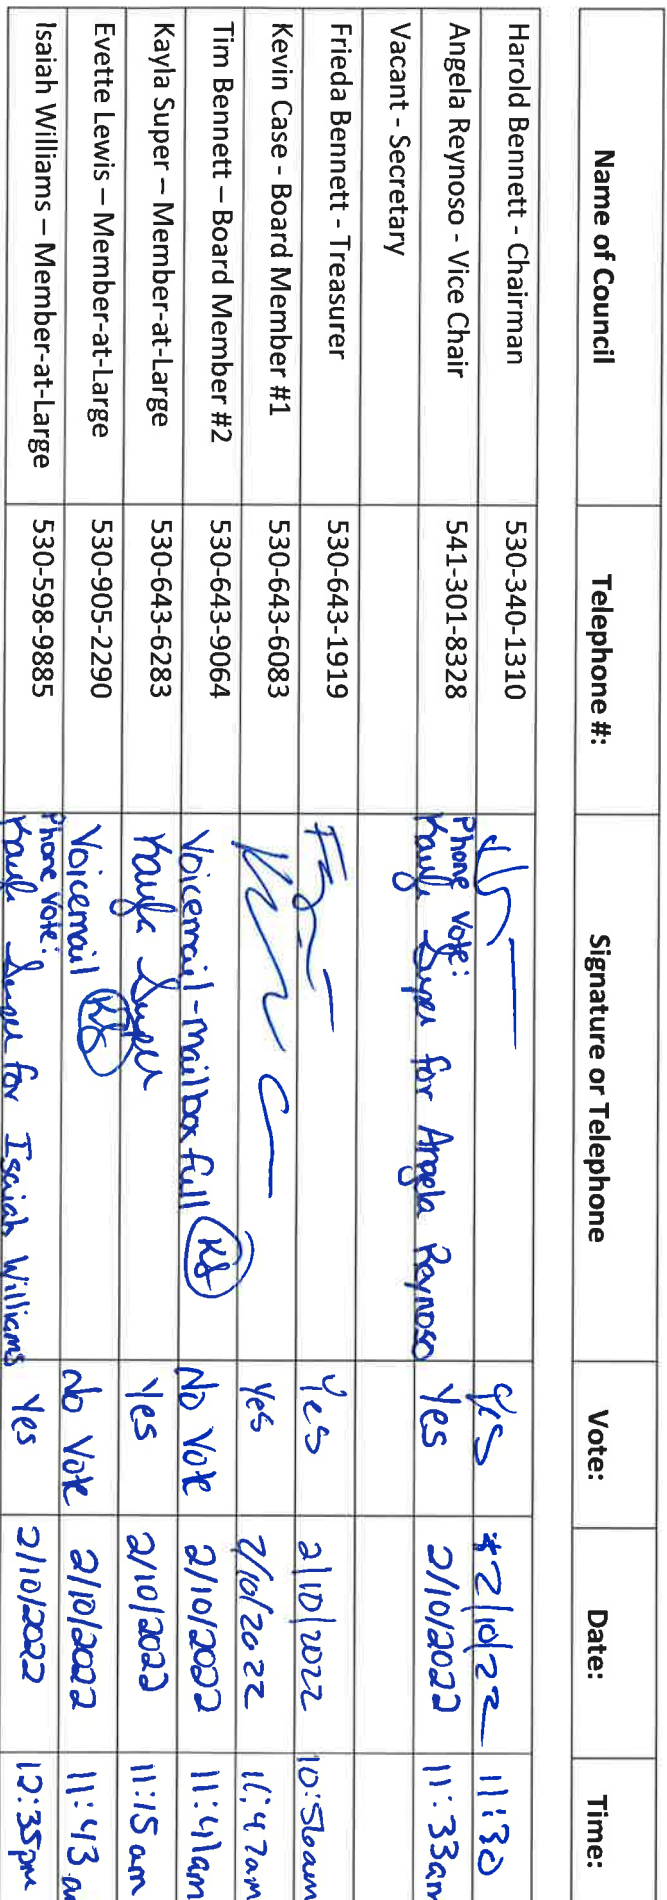 Name of Council Telephone #: Signature or Telephone Vote: Date: Time:
Harold Bennett - Chairman 530-340-1310 yes *2/10/22 11:30
Angela Reynoso - Vice Chair 541-301-8328 Phone Vote: Kayla Super for Angela Reynoso Yes 2/10/2022 11:33am
Vacant - Secretary
Frieda Bennett - Treasurer 530-643-1919 Yes 2/10/2022 10:56am
Kevin Case - Board Member #1 530-643-6083 Yes 2/10/2022 11:47am
Tim Bennett – Board Member #2 530-643-9064 Voicemail-mailbox full KS No Vote 2/10/2022 11:41am
Kayla Super – Member-at-Large 530-643-6283 Kayla Super Yes 2/10/2022 11:15am
Evette Lewis – Member-at-Large 530-905-2290 Voicemail KS No Vote 2/10/2022 11:43
Isaiah Williams – Member-at-Large 530-598-9885 Phone Vote: Kayla Super for Isaiah Williams Yes 2/10/2022 12:35pm